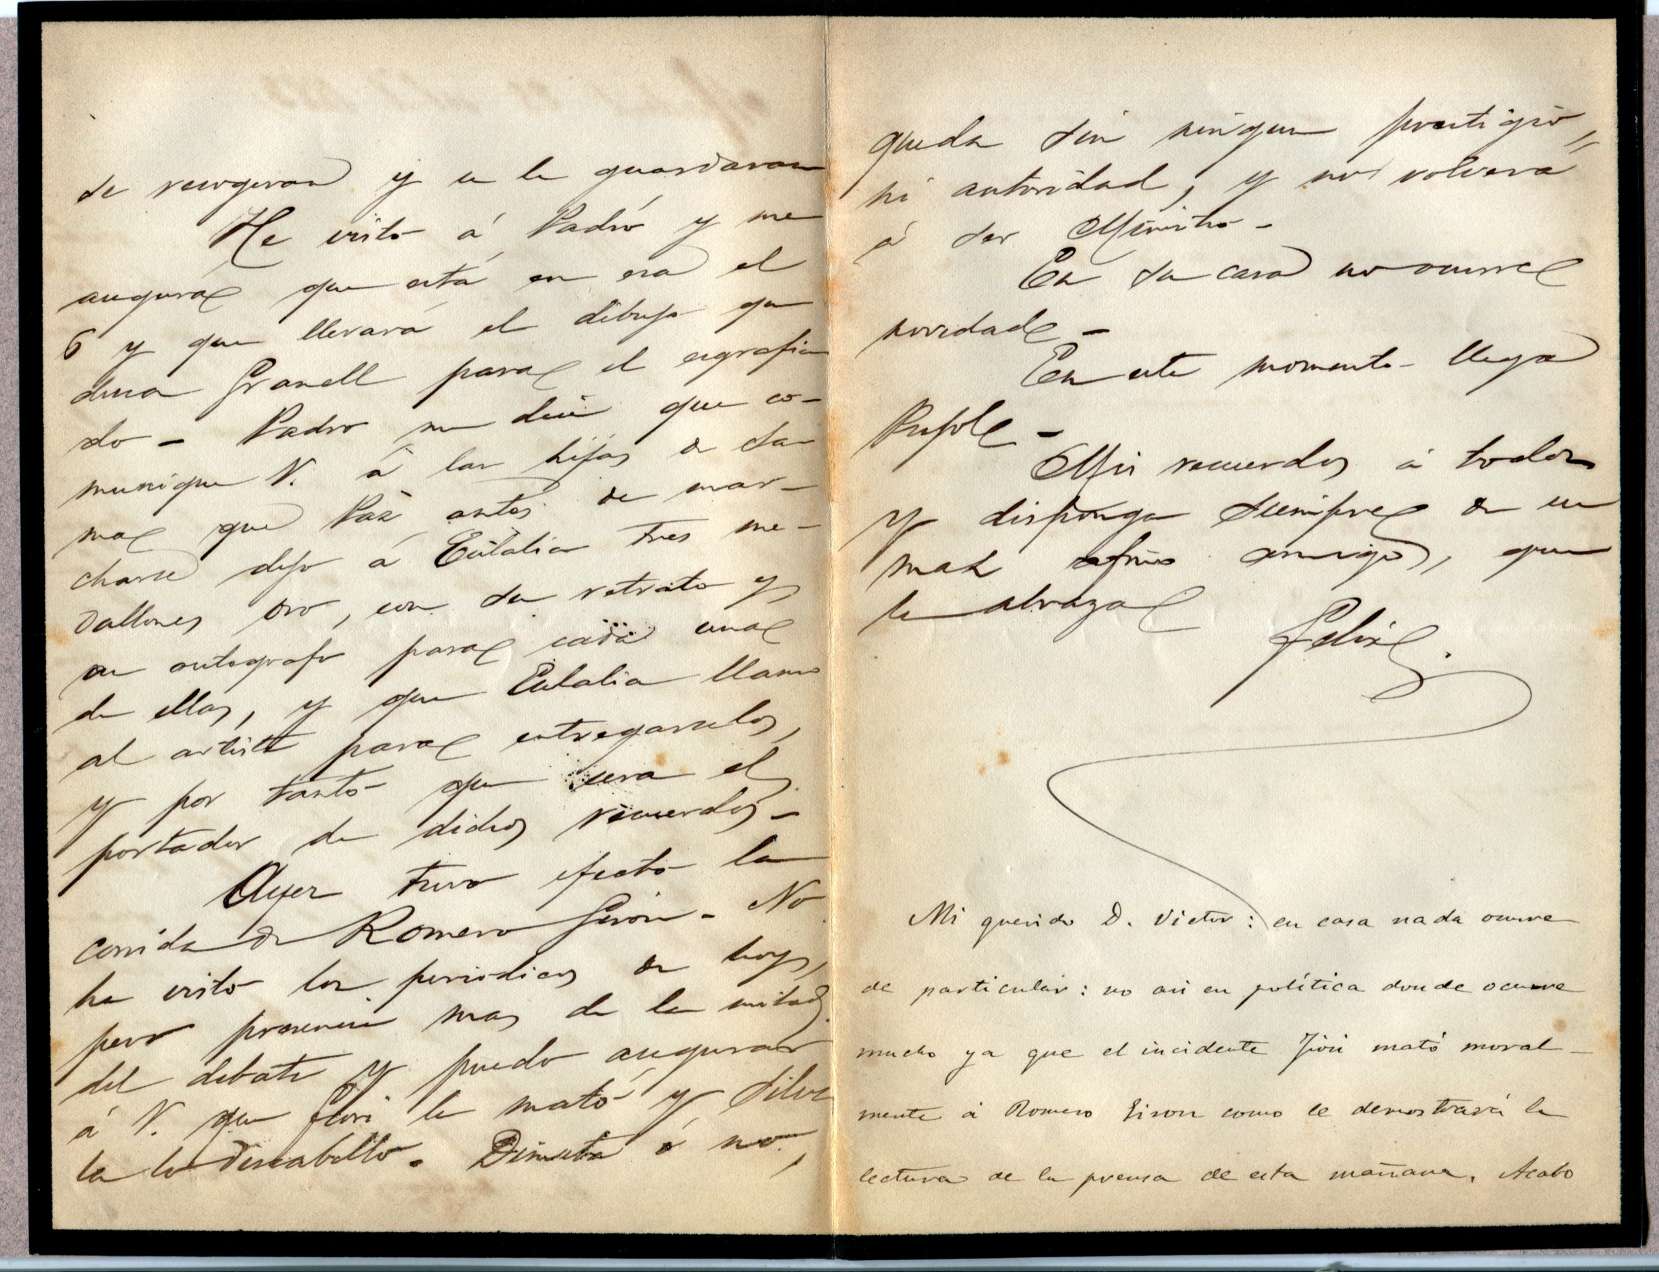 se recogeran y se le guardaran
He visto á Padró y me
asegura que estará en esa el
6 y que llevará el dibujo que
desea Granell para el esgrafia
do - Padro me dice que co-
munique V. á las hijas de Sa-
ma que Paz antes de mar-
charse dejo á Eulalia tres me-
dallones oro, con su retrato y
su autografo para cada una
de ellas, y que Eulalia llamo
al artista para entregarselos,
y por tanto que sera el
portador de dichos recuerdos -
Ayer tuvo efecto la
corrida de Romero Girón - No
he visto los periodicos de hoy,
pero presencie mas de la mitad
del debate y puedo asegurar
á V. que Gori le mató y Silve
la lo descabelló. Dimita ó no,
queda sin ningun prestigio,
ni autoridad, y no volverá
á ser Ministro -
En su casa no ocurre
novedad -
En este momento llega
Pujol -
Mis recuerdos á todos
y disponga siempre de su
mas afmo amigo, que
le abraza
Felix.
Mi querido D. Victor: en casa nada ocurre
de particular: no asi en política donde ocurre
mucho ya que el incidente Jiori mató moral-
mente á Romero Giron como le demostrará la
lectura de la prensa de esta mañana. Acabo